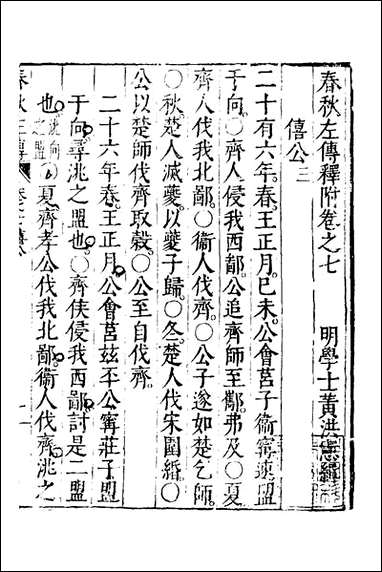 春秋左傳釋附卷之七　明學士黃洪憲輯
僖公三
二十有六年。春。王正月。己未。公會莒子衞甯速盟
于向。〇齊人侵我西鄙。公追齊師至酅。弗及〇夏
齊人伐我北鄙。〇衞人伐齊。〇公子遂如楚乞師。
〇秋。楚人滅夔。以夔子歸。〇冬。楚人伐宋圍緡。〇
公以楚師伐齊取穀。〇公至自伐齊
二十六年春。王正月。公會莒茲㔻公甯莊子盟
于向。尋洮之盟也。〇齊侯侵我西鄙。討是二盟
也。洮向之盟〇夏。齊孝公伐我北鄙。衞人伐齊。洮之
春秋左傳